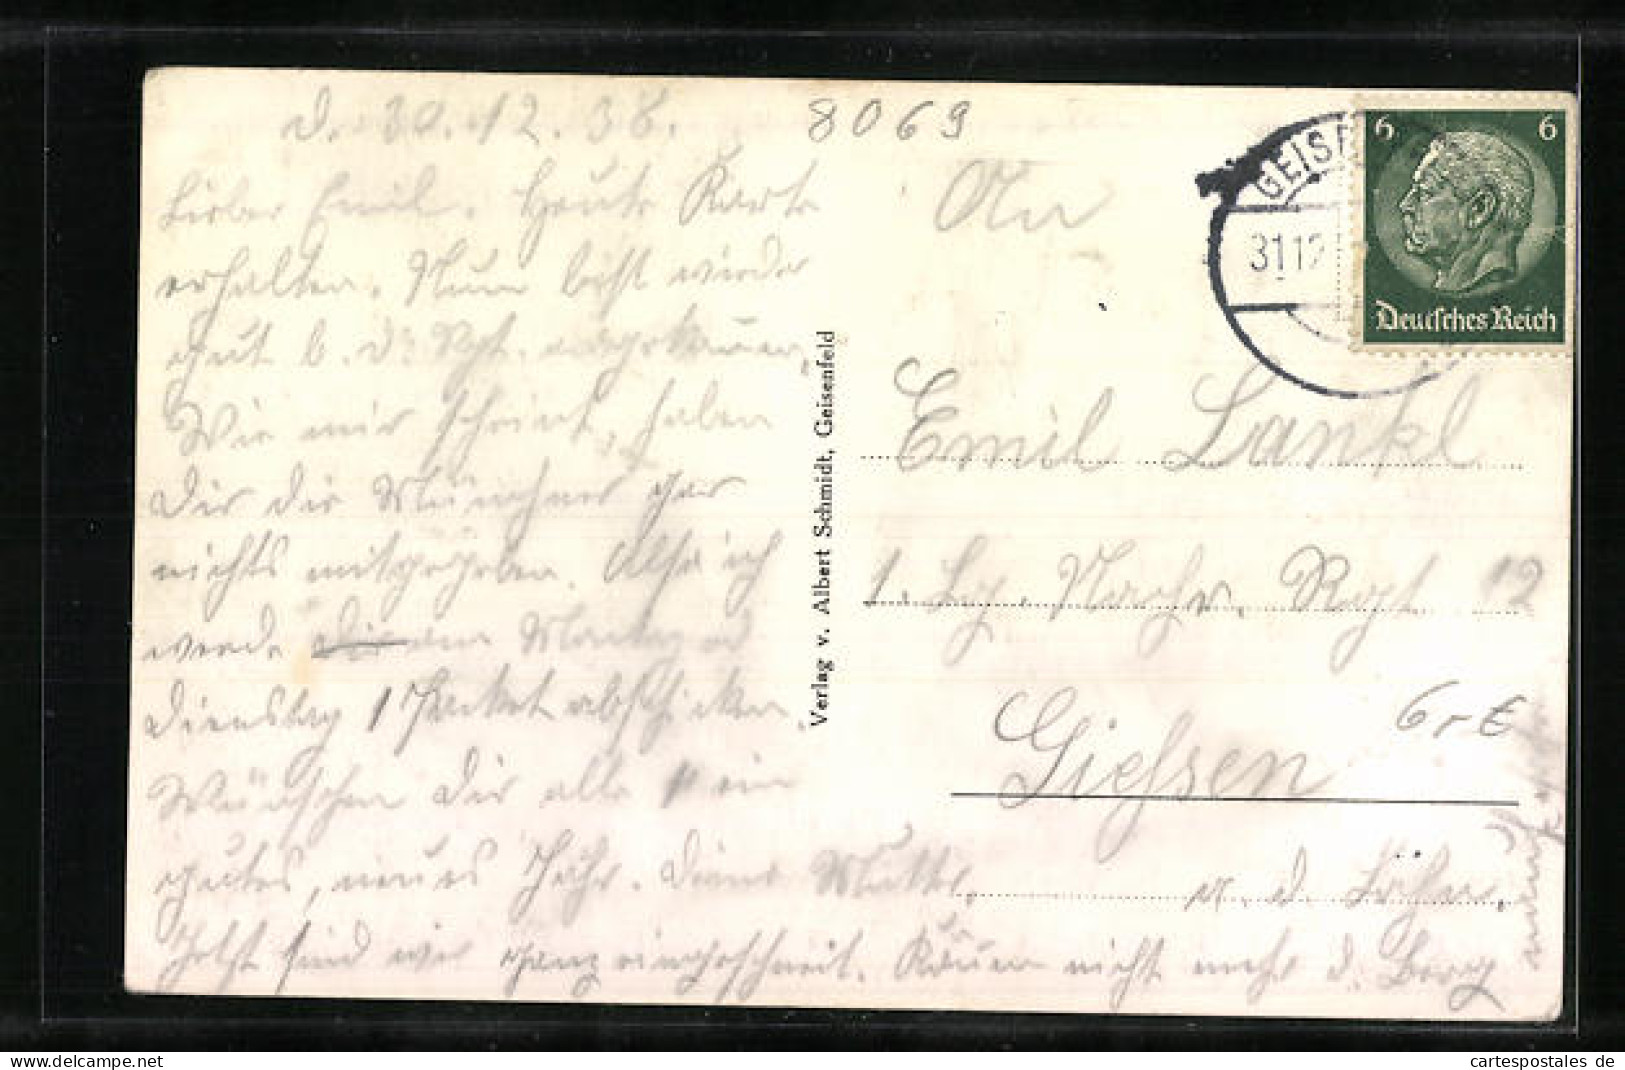 d. 30.12.38.
8069
Lieber Emil. Heute Karte
erhalten. Nun bist wieder
gut b. d. Rgt. angekommen.
Wie mir scheint, haben
Dir die Münchner gar
nichts mitgegeben. Also ich
werde am Montag od
Dienstag 1 Packet abschicken.
Wünschen Dir alle ein
gutes, neues Jahr. Deine Mutter.
Jetzt sind wir ganz eingeschneit. Kaum nicht mehr d. Berg
Verlag v. Albert Schmidt, Geisenfeld
GEISE
31.12
6 6
Deutsches Reich
An
Emil Lankl
1. Nachr. Rgt 12
Giessen
a. d. Lahn.
6,- €
cartespostales de
www.delcampe.net